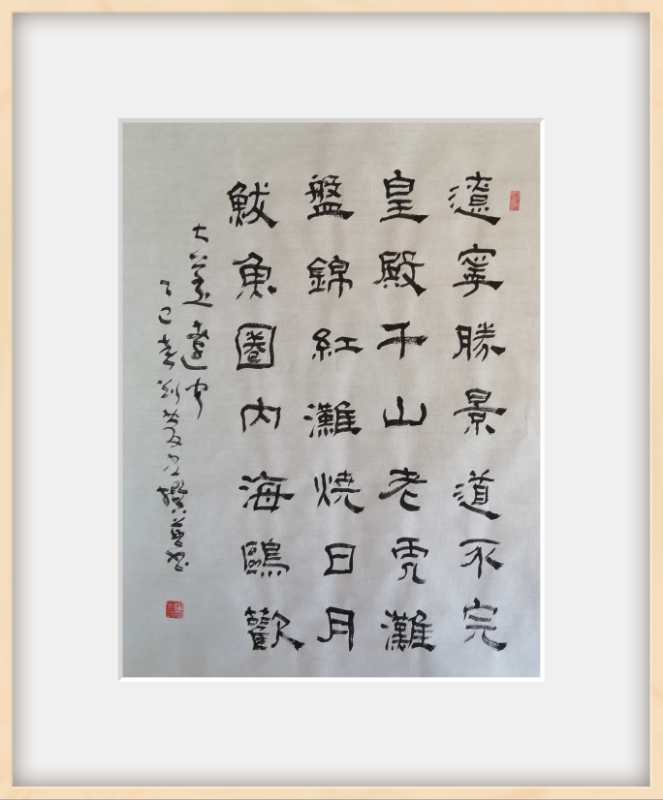 遼寧勝景道不完
皇殿千山老虎灘
盤錦紅灘燒日月
鮁魚圈內海鷗歡
大美遼宁
乙巳春刘撰并书